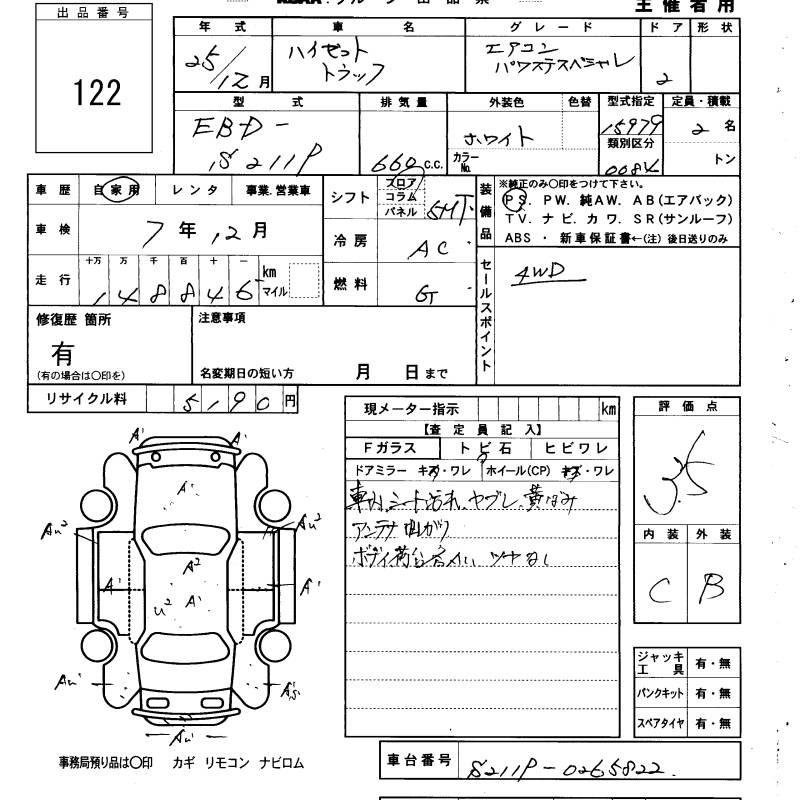 主催者用
出品番号
122
年式 車名 グレード ドア 形状
25/12月 ハイゼット トラック エアコン パワステスペシャル 2
型式 排気量 外装色 色替 型式指定 定員・積載
EBD-S211P 660c.c. ホワイト 15979 2名
カラーNo. 類別区分 トン
0084
車歴 自家用 レンタ 事業.営業車
車検 7年12月
十万 万 千 百 十 一
走行 148846 km マイル
シフト フロア コラム パネル 5MT
冷房 AC
燃料 G
装備品
※純正のみ〇印をつけて下さい。
PS. PW. 純AW. AB(エアバック)
TV. ナビ. カワ. SR(サンルーフ)
ABS ・ 新車保証書←(注) 後日送りのみ
セールスポイント
4WD
修復歴 箇所
有
(有の場合は〇印を)
注意事項
名変期日の短い方 月 日まで
リサイクル料 5190円
現メーター指示 km
【査定員記入】
Fガラス トビ石 ヒビワレ
ドアミラー キズ・ワレ ホイール(CP) キズ・ワレ
車内、シート汚れ、ヤブレ、黄ばみ
アンテナ曲がり
ツヤなし
評価点
3.5
内装 外装
C B
A' A'
A'
Au² Au²
A²
A' A' A'
U²
Au' A's
Au'
事務局預り品は〇印 カギ リモコン ナビロム
ジャッキ工具 有・無
パンクキット 有・無
スペアタイヤ 有・無
車台番号 S211P-0265822